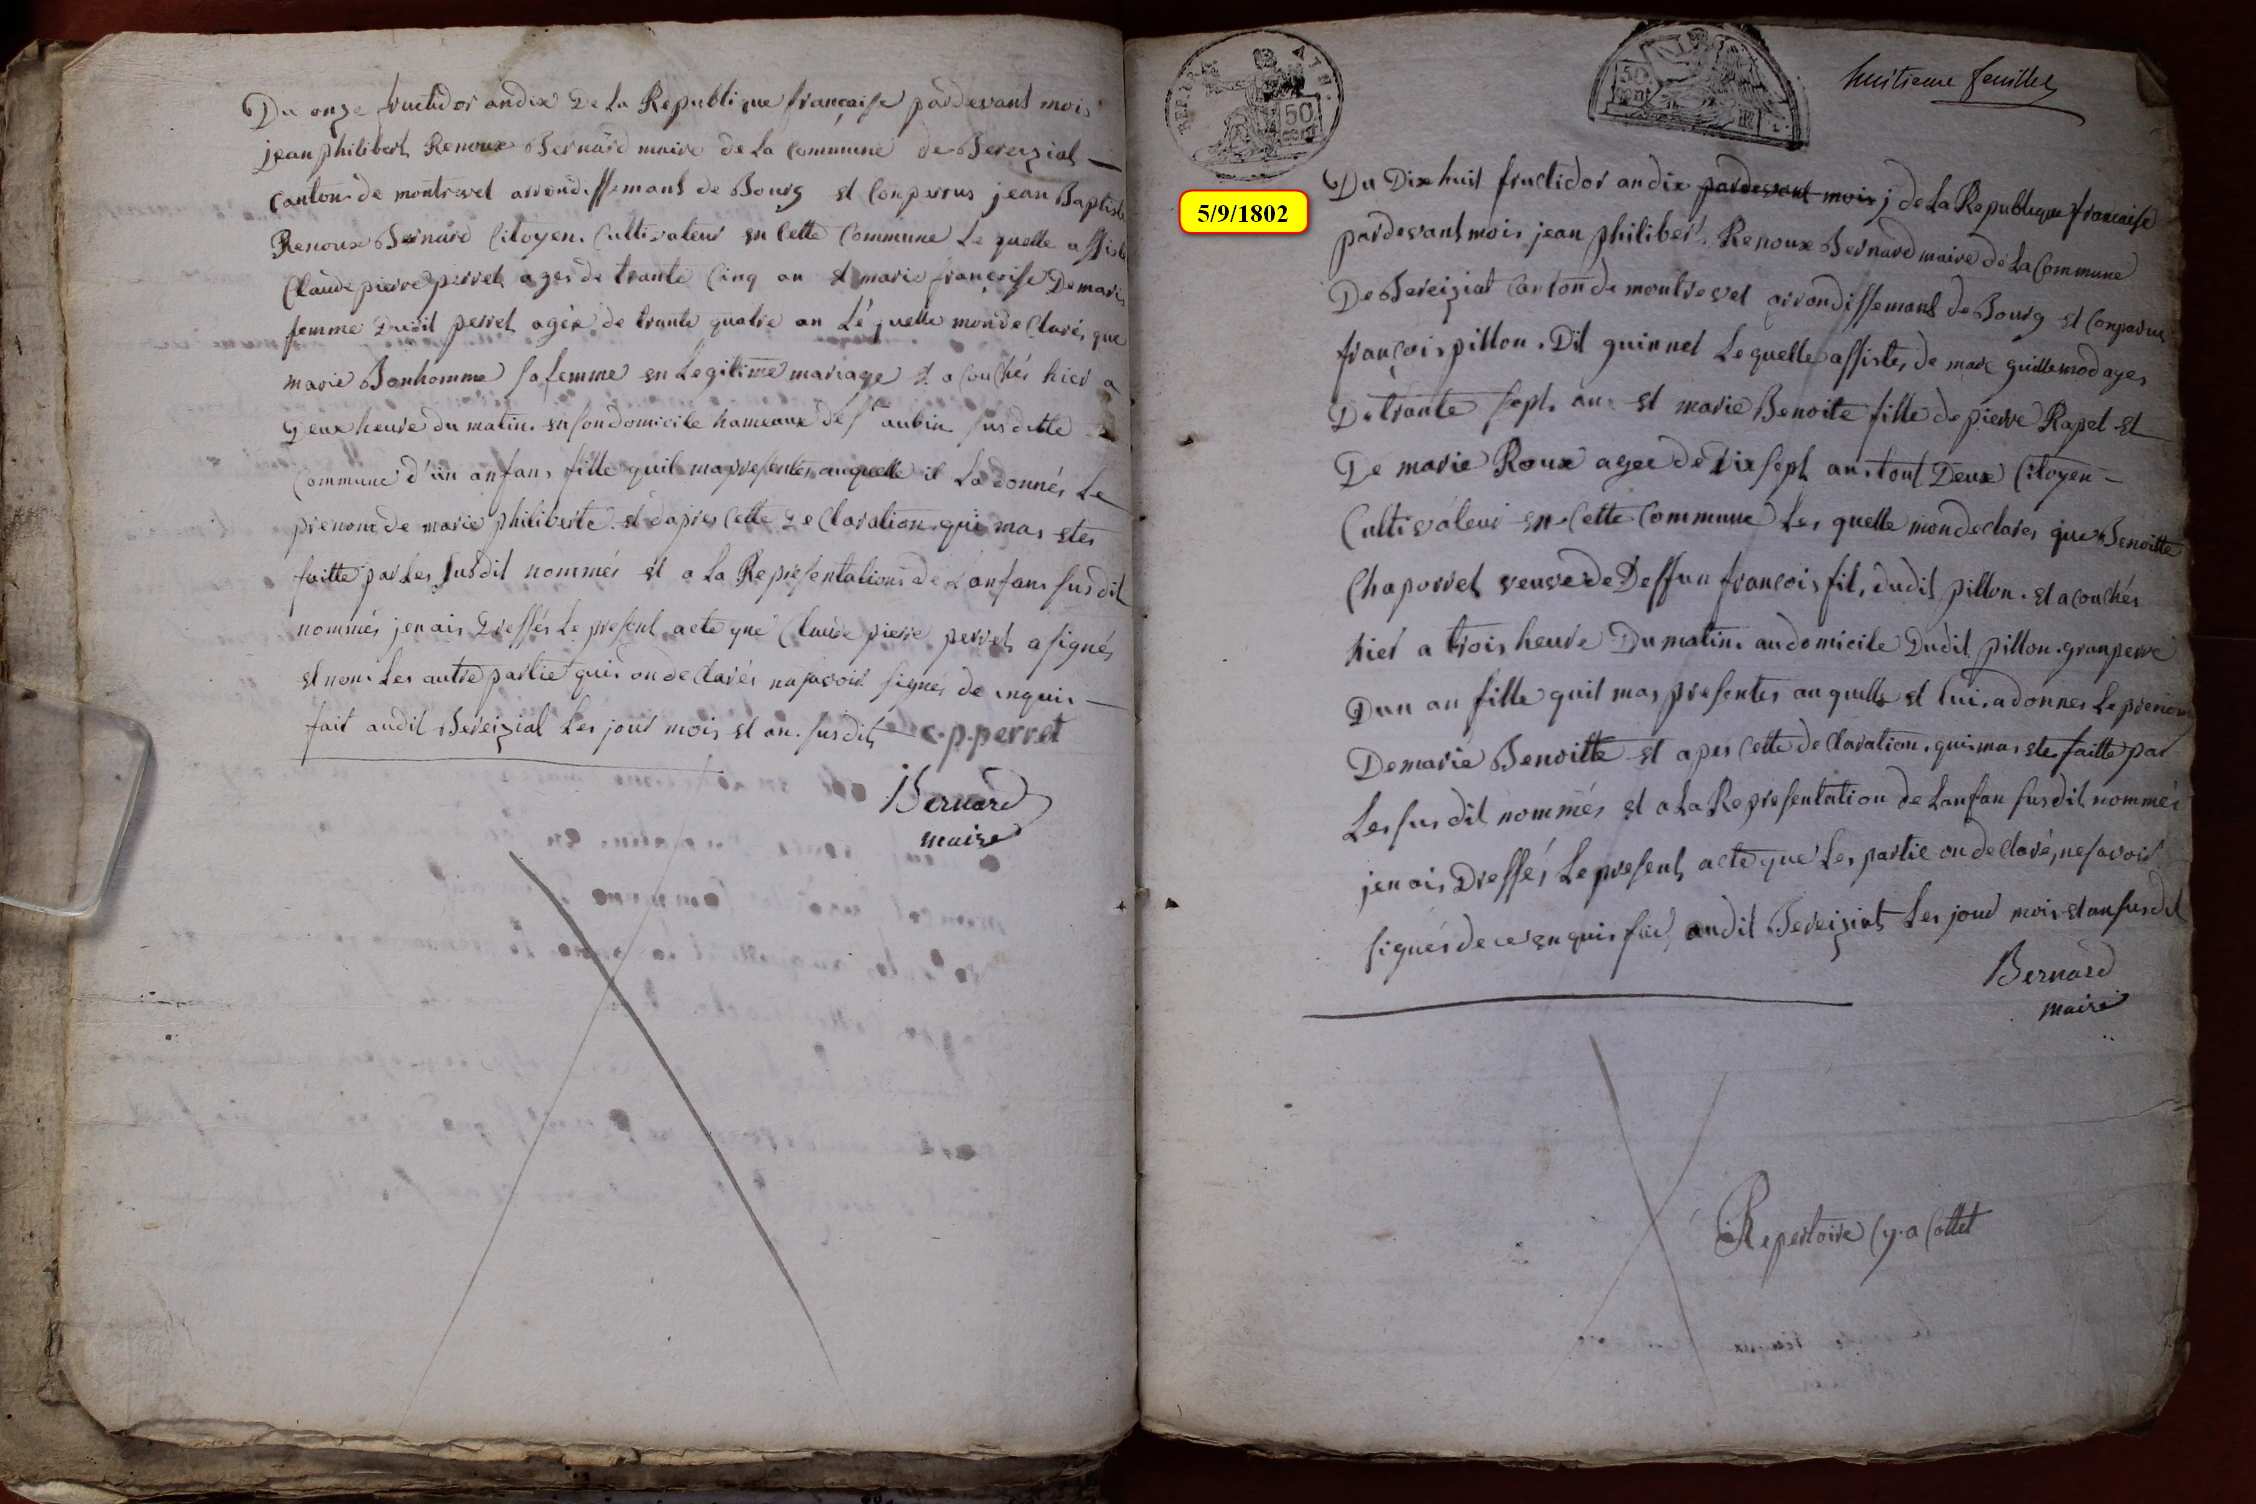 Du onze fructidor an dix De La Republique française pardevant mois
jean philibert Renoux Bernard maire de La Commune de Bereiziat
Canton de montrevet arrondissemant de Bourg et Conparrus jean Baptiste
Renoux Bernard Citoyen Cultivateur en Cette Commune Le quelle assisté
Claude pierre perret ages de trante Cinq an et marie françoise Demarie
femme Dudit perret agée de trante quatre an Lé quelle mon de Clarés que
marie Bonhomme sa femme en Legitime mariage et a couchés hier a
Deux heure du matin en son domicile hameaux de st aubin susditte
Commune d'un anfans fille quil ma presentés au quelle il La donnés Le
prenom de marie philiberte et dapres Cette De Claration qui mas etes
faitte par Les susdit nommés et a La Representations de L'anfans susdit
nommés jen ais Dressés Le present acte que Claude pierre perret a signés
et non Les autre partie quis on de Clarés na savoir signés de inquis
fait audit Bereizial Les jour mois et an susdit c.p.perret
Bernard
maire
REP. FRA.
50
cent
50
cent
huitieme feuillet
5/9/1802
Du Dix huit fructidor an dix pardevant mois j de La Republique francaise
pardevant mois jean philibert Renoux Bernard maire de La Commune
De Bereiziat Canton de montrevet arrondissemant de Bourg et Conparus
françois pillon Dit guinnet Le quelle assistes de marc guillemod ages
De trante sept an et marie Benoite fille de pierre Rapet et
De marie Roux agee de Dix sept ans tout Deux Citoyen
Cultivateur en Cette Commune Les quelle mon declares que Benoitte
Chaporret veuve de Deffun francois fils dudit pillon et a couchés
hier a trois heure Du matin au domicile Dudit pillon granperre
Dun an fille quil mas presentes au quelle et lui a donnes Le prenom
De marie Benoitte et apes Cette de Claration quis mas etes faitte par
Les susdit nommés et a La Representation de Lanfan susdit nommés
jen ais Dressés Le present acte que Les partie on de Claré ne savoir
signés de ce enquis fait audit Bereiziat Les jour mois et an susdit
Bernard
maire
Repertoire Cy a Cottet